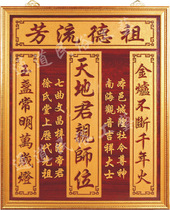 祖德流芳
金爐不斷千年火
本邑城隍社令尊神
南海觀音大士
天地君親師位
七曲文昌梓潼帝君
徐氏堂上歷代先祖
玉盞常明萬歲燈